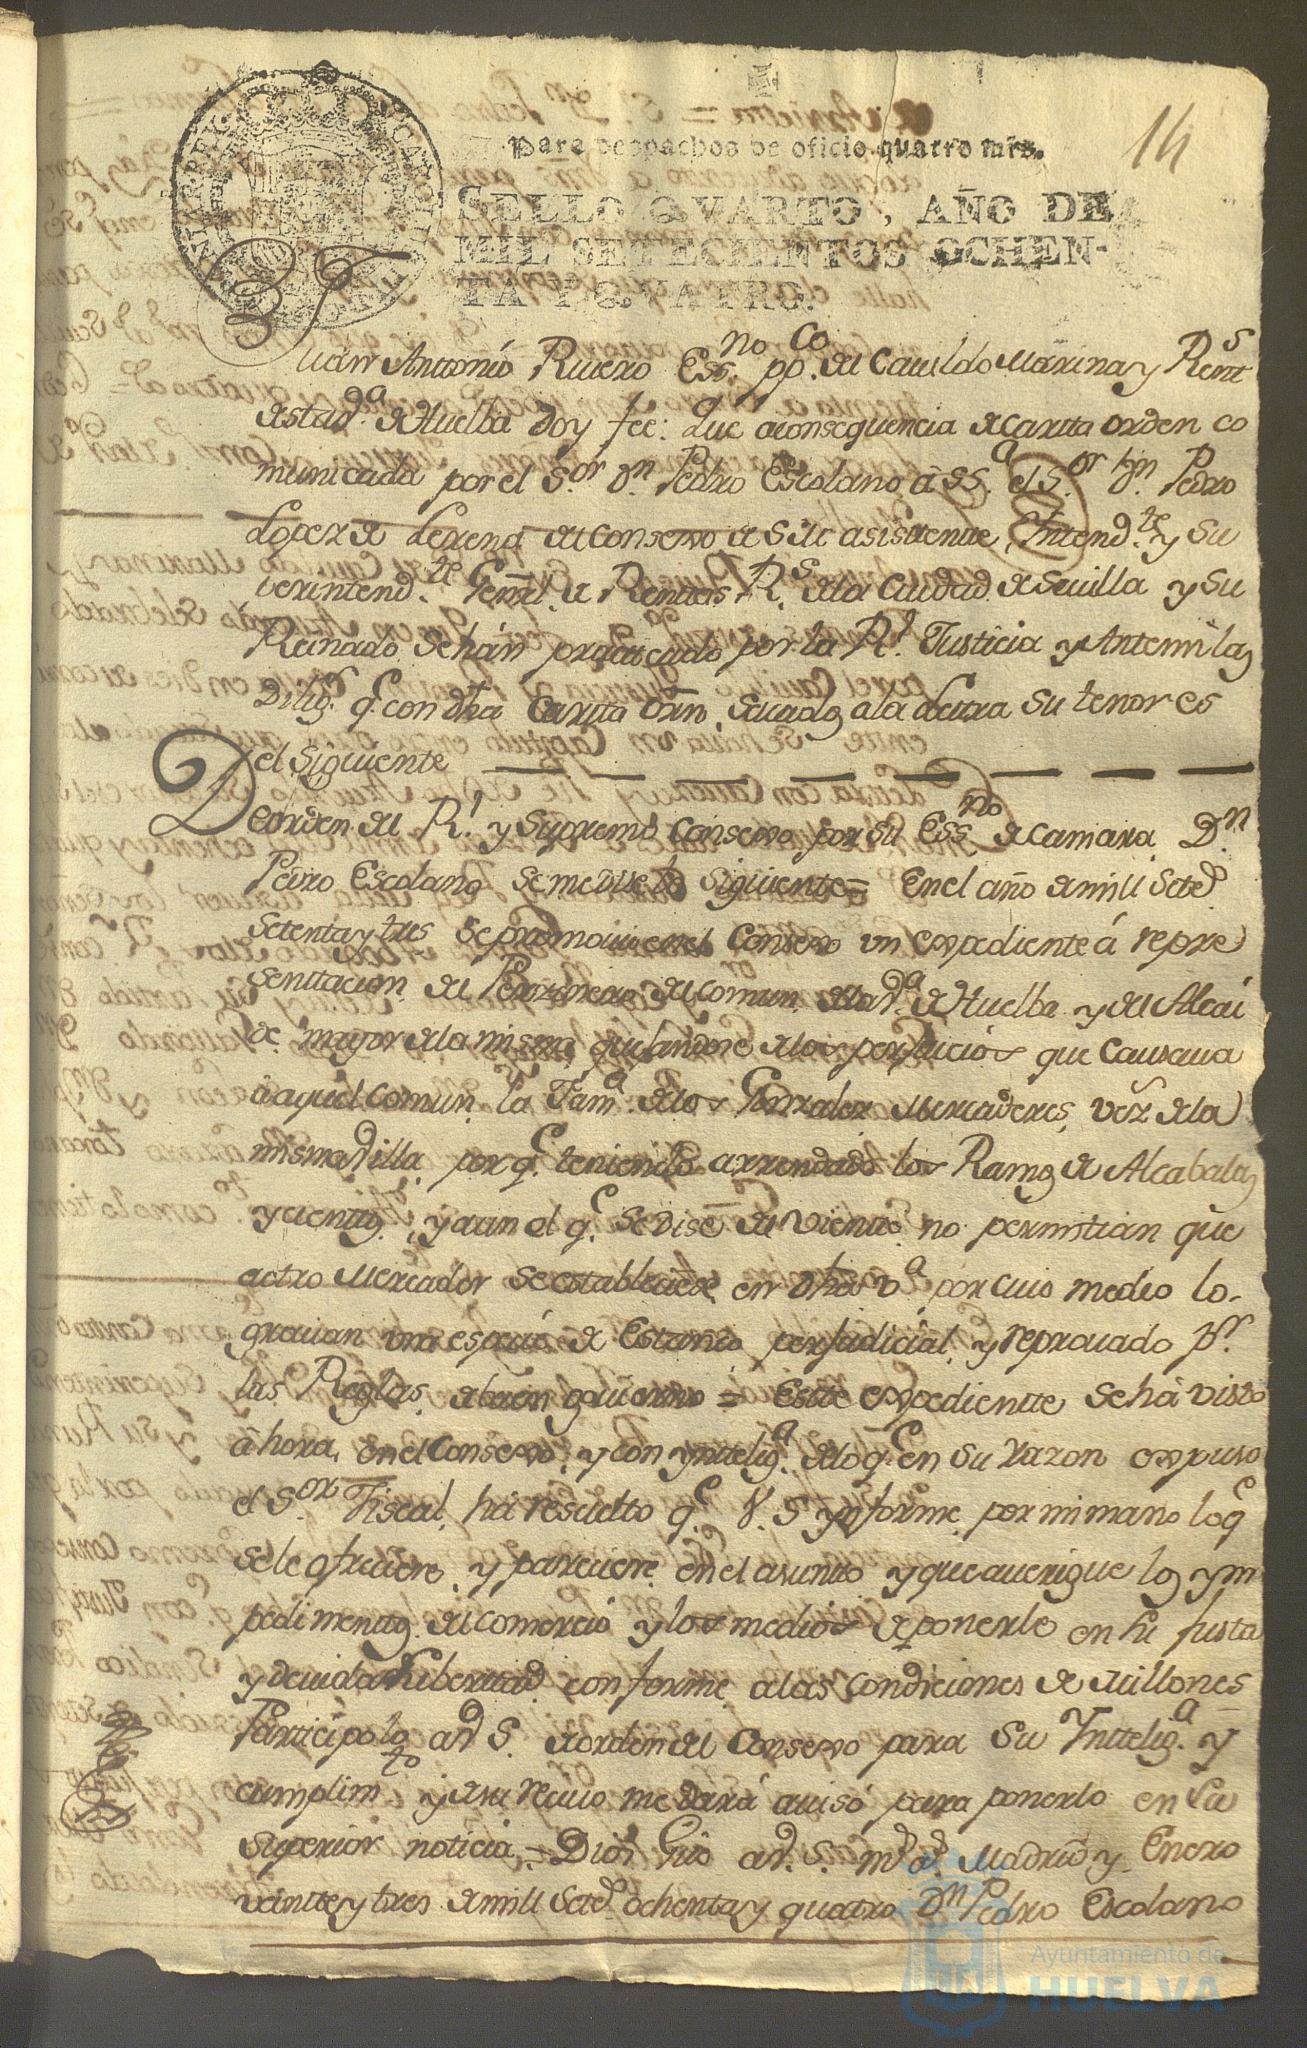 14
Para despachos de oficio quatro mrs.
SELLO QVARTO, AÑO DE
MIL SETECIENTOS OCHEN-
TA Y QVATRO.
Juan Antonio Rivero Essno. ppco. del Cauildo Marina y Rents
de esta vda. de Huelba doy fee: Que a consequencia de carta orden co
municada por el Sor. Dn. Pedro Escolano a SSa. el Sor. Dn. Pedro
Lopez de Lerena del Consexo de S.M. asistente, Intendte. y Su
perintendte. Genrâl. de Rentas Rs. de la Ciudad de Sevilla y su
Reinado. Se hán practicado por la Rl. Justicia y Antemi las
Diligs. qe. con dha Carta Orn. Sacadas a la Letra su tenor es
el Siguiente
De orden del Rl. y Supremo Consexo por su Essno de Camara Dn
Pedro Escolano Se me dice lo Siguiente = En el año de mill Seted
Setenta y tres Se promovio en el Consexo un expediente á repre
sentacion del Personero del comun de la va. de Huelba y del Alcai
de mayor de la misma, quejandose de los perjuicios que causava
á aquel comun la Fama. de los Gonzalez Mercaderes, vez. de la
misma villa, por qe. teniendo arrendado los Ramos de Alcabalas
y cientos, y aun el qe. Se dise del viento no permitian que
a otro Mercader Se estableciese en dha va por cuio medio lo-
gravan una especie de Estanco perjudicial, y reprovado pr.
las Reglas de buen govierno = Este expediente Se há visto
ahora en el Consexo, y con ynteliga. de lo qe en su razon expuso
el Sor Fiscal, há resuelto qe. V. S ynforme por mi mano lo qe
Se le ofreciere y pareciere en el asunto y que averigue los ym
pedimentos del comercio y los medios de ponerle en su justa
y devida Libertad conforme a las condiciones de Millones
Participolo a V. S. de orden del Consexo para su Ynteliga. y
cumplimto y de su recivo me dará aviso para ponerlo en su
Superior noticia = Dios gue a V. S. ms. as. Madrid y Enero
veinte y tres de mill Seted ochenta y quatro Dn Pedro Escolano
Ayuntamiento de
HUELVA